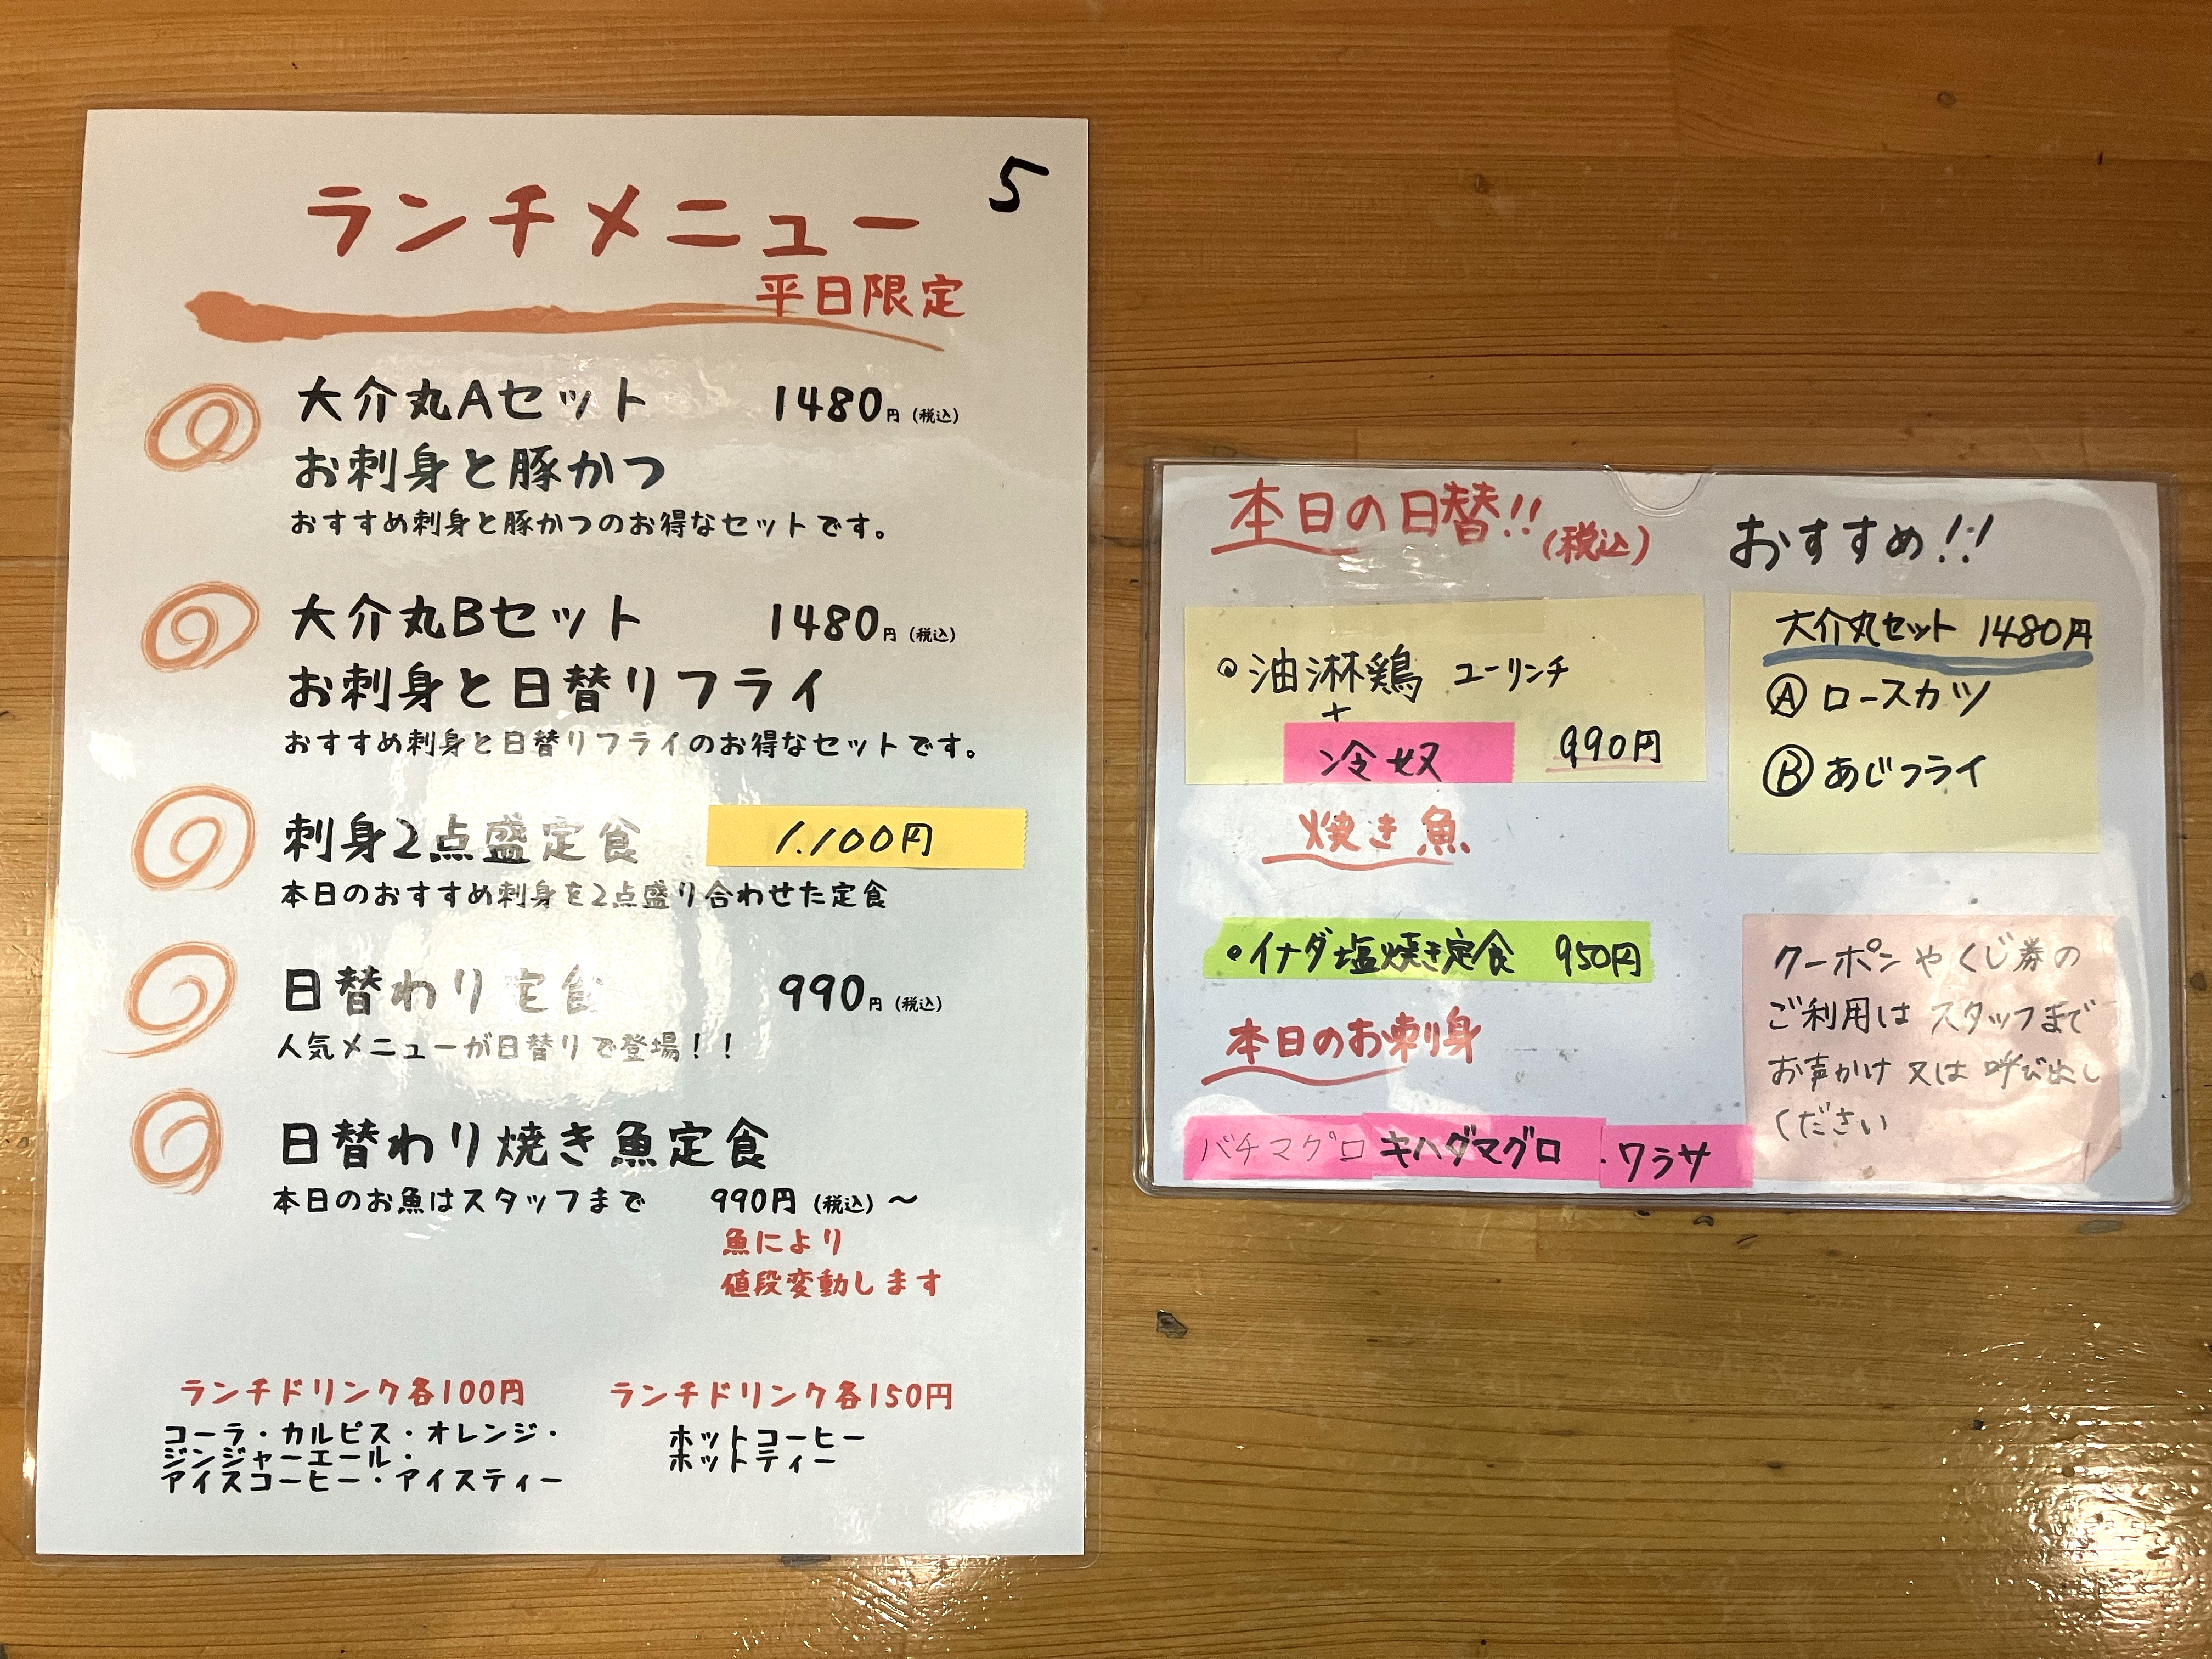 ランチメニュー
5
平日限定
大介丸Aセット 1480円(税込)
お刺身と豚かつ
おすすめ刺身と豚かつのお得なセットです。
大介丸Bセット 1480円(税込)
お刺身と日替りフライ
おすすめ刺身と日替りフライのお得なセットです。
刺身2点盛定食 1.100円
本日のおすすめ刺身を2点盛り合わせた定食
日替わり定食 990円(税込)
人気メニューが日替りで登場!!
日替わり焼き魚定食
本日のお魚はスタッフまで 990円(税込)～
魚により
値段変動します
ランチドリンク各100円
コーラ・カルピス・オレンジ・
ジンジャーエール・
アイスコーヒー・アイスティー
ランチドリンク各150円
ホットコーヒー
ホットティー
本日の日替!!(税込)
油淋鶏 ユーリンチ
+
冷奴 990円
焼き魚
・イナダ塩焼き定食 950円
本日のお刺身
バチマグロ キハダマグロ・ワラサ
おすすめ!!
大介丸セット 1480円
Ⓐ ロースカツ
Ⓑ あじフライ
クーポンやくじ券の
ご利用は スタッフまで
お声かけ 又は 呼び出し
ください